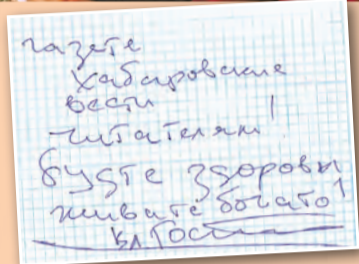 газете
Хабаровские
вести
читателям!
будте здоровы
живите богато!
Вл Гостю